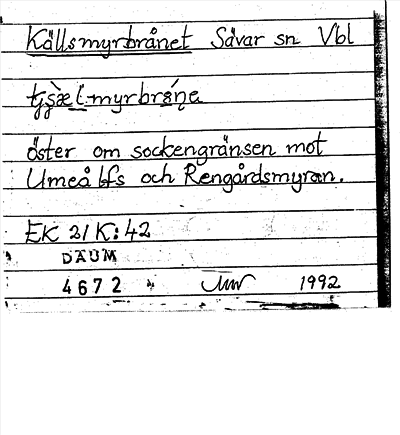 Källsmyrbrånet Sävar sn Vbl
öster om sockengränsen mot
Umeå lfs och Rengårdsmyran.
EK 21 K:42
DAUM
4672 1992